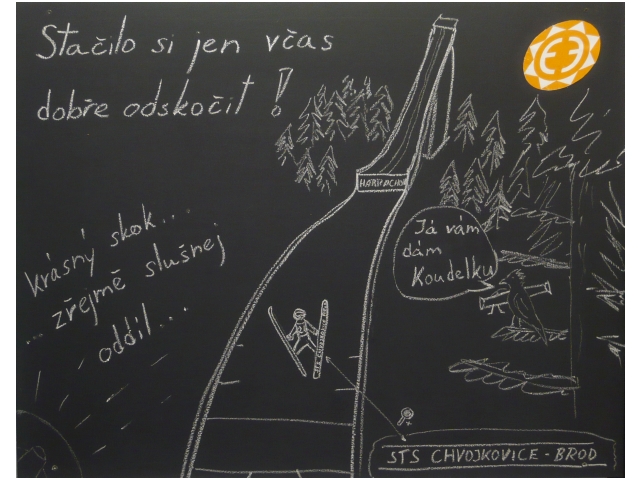 Stačilo si jen včas
dobře odskočit!
HARRACHOV
Já vám
dám
Koudelku
krásný skok...
... zřejmě slušnej
oddíl...
STS CHVOJKOVICE - BROD